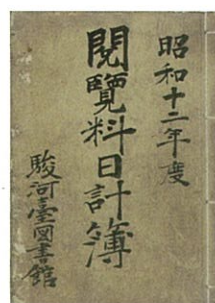 昭和十二年度
閲覽料日計簿
駿河臺図書館